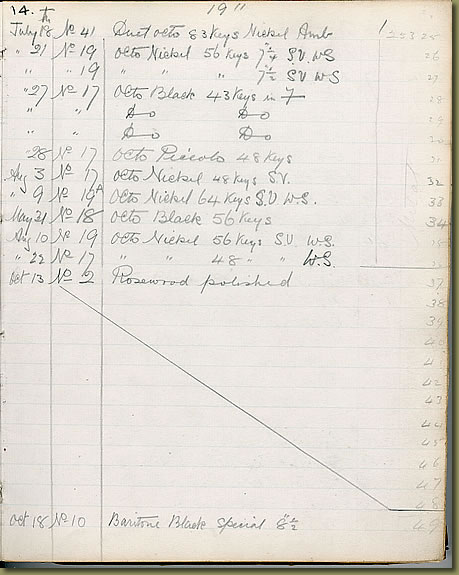 14. 19"
July 18th No 41 Duet octo 83 Keys Nickel Amb 22325
" 21 No 19 octo Nickel 56 Keys 7"¼ S.V. W.S 26
" " 19 " " " 7"½ S.V W.S 27
" 27 No 17 octo Black 43 Keys in 7 28
" " Do Do 29
" " Do Do 30
" 28 No 17 octo Piccolo 48 Keys 31
Aug 3 No 17 octo Nickel 48 Keys S.V. 32
" 9 No 19A octo Nickel 64 Keys S.V W.S. 33
May 31 No 18 octo Black 56 Keys 34
Aug 10 No 19 octo Nickel 56 Keys S.V. W.S.
" 22 No 17 " " 48 " " W.S.
Oct 13 No 2 Rosewood polished 37
38
39
40
41
42
43
44
45
46
47
48
Oct 18 No 10 Baritone Black special 8"½ 49